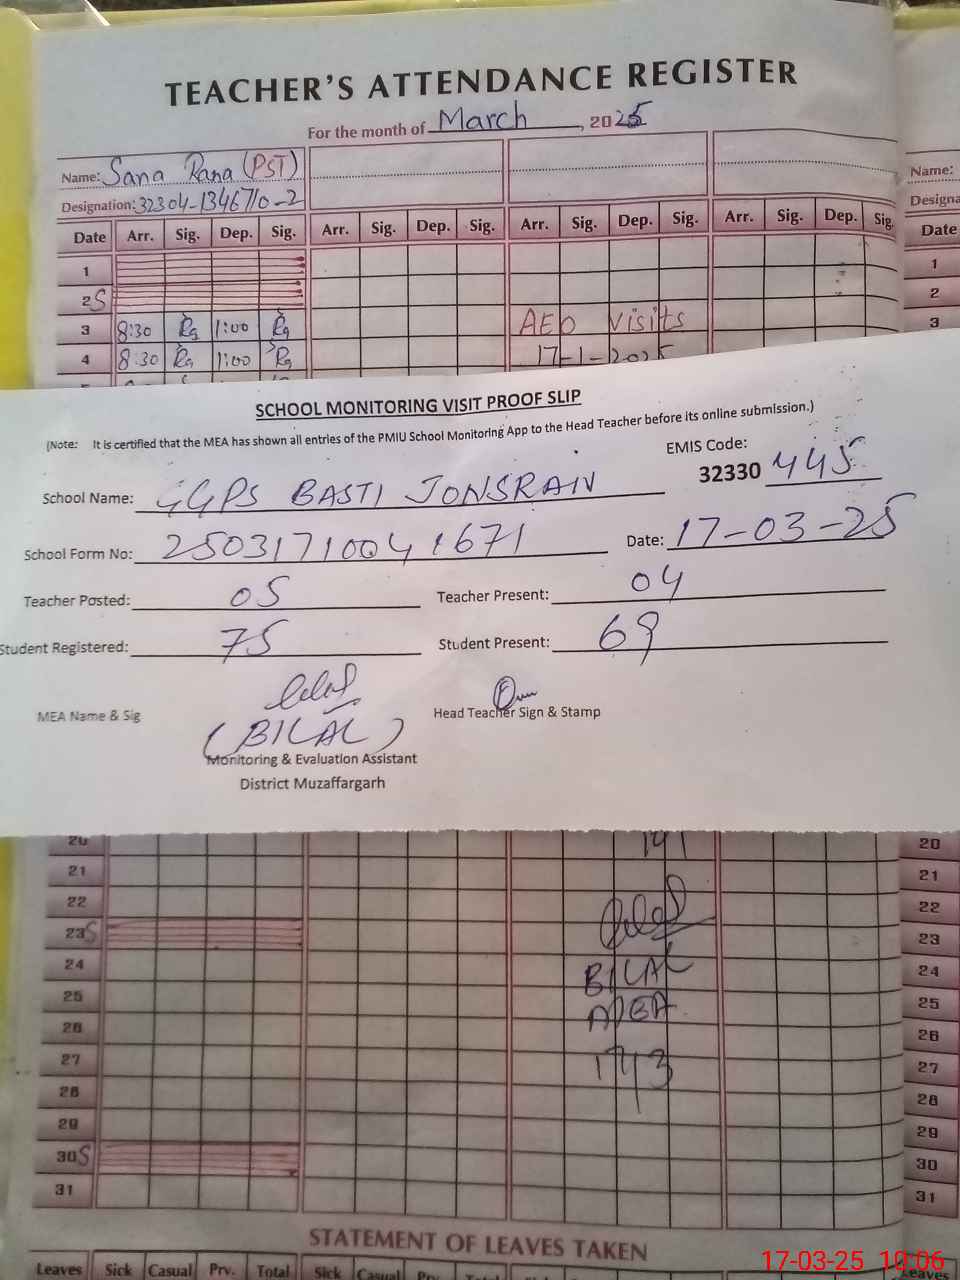 TEACHER'S ATTENDANCE REGISTER
For the month of March, 2025
Name: Sana Rana (PST)
Name:
Designation: 32304-1346710-2
Designa
Date Arr. Sig. Dep. Sig. Arr. Sig. Dep. Sig. Arr. Sig. Dep. Sig. Arr. Sig. Dep. Sig. Date
1 1
2 S 2
3 8:30 Rg 1:00 Rg AEO visits 3
4 8:30 Rg 1:00 Rg 17-1-2025
SCHOOL MONITORING VISIT PROOF SLIP
(Note: It is certified that the MEA has shown all entries of the PMIU School Monitoring App to the Head Teacher before its online submission.)
School Name: GGPS BASTI JONSRAIN
EMIS Code: 32330 445
School Form No: 25031710041671
Date: 17-03-25
Teacher Posted: 05 Teacher Present: 04
Student Registered: 75 Student Present: 69
MEA Name & Sig
(BILAL)
Head Teacher Sign & Stamp
Monitoring & Evaluation Assistant
District Muzaffargarh
20 20
21 21
22 22
23 S 23
24 BILAL 24
25 25
26 26
27 1743 27
28 28
29 29
30 S 30
31 31
STATEMENT OF LEAVES TAKEN
Leaves Sick Casual Prv. Total Sick Casual Prv. Total Leaves
17-03-25 10:06